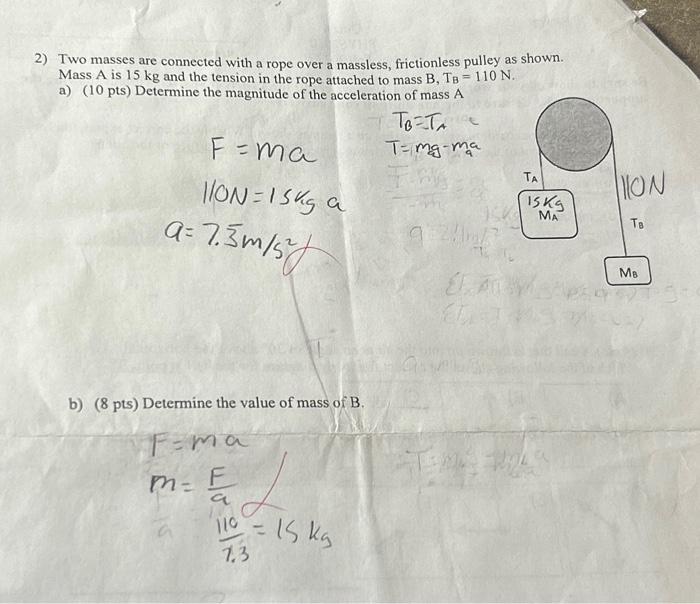 2) Two masses are connected with a rope over a massless, frictionless pulley as shown.
Mass A is 15 kg and the tension in the rope attached to mass B, TB = 110 N.
a) (10 pts) Determine the magnitude of the acceleration of mass A
TB=TA
F = ma
T=mg-ma
110N=15kg a
a= 7.3m/s²
TA
15kg
MA
110N
TB
MB
b) (8 pts) Determine the value of mass of B.
F=ma
m= F/a
110/7.3 = 15 kg